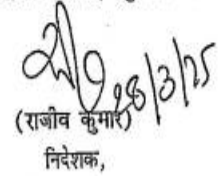 28/3/25
(राजीव कुमार)
निदेशक,